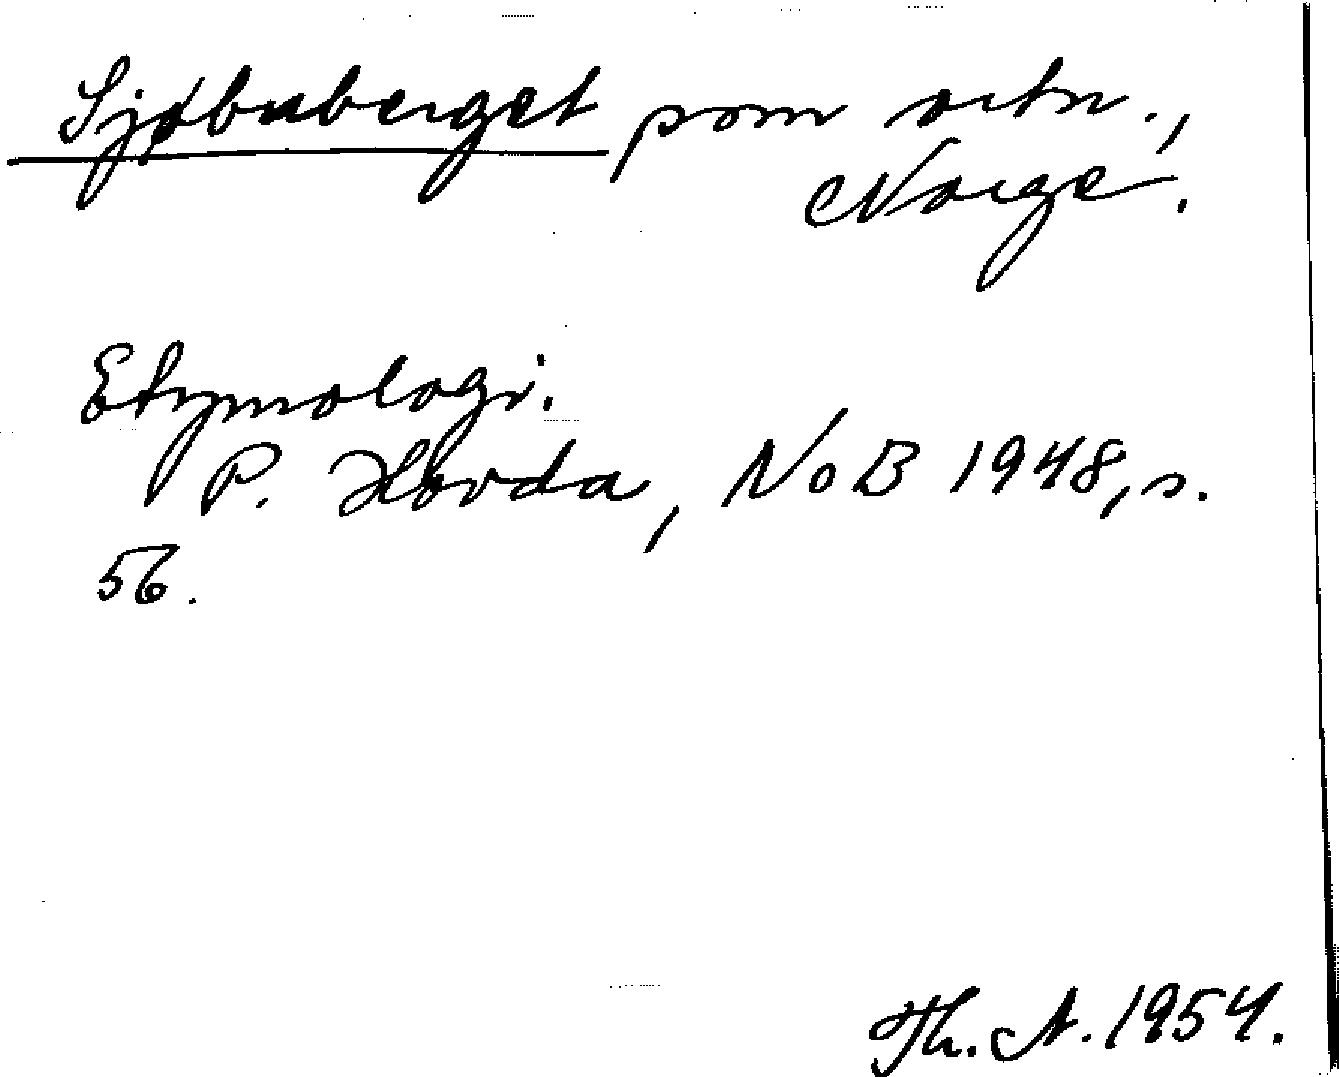 Sjøbuberget som ortn.,
Norge.
Etymologi.
P. Hovda, NoB 1948, s.
56.
Th. A. 1954.